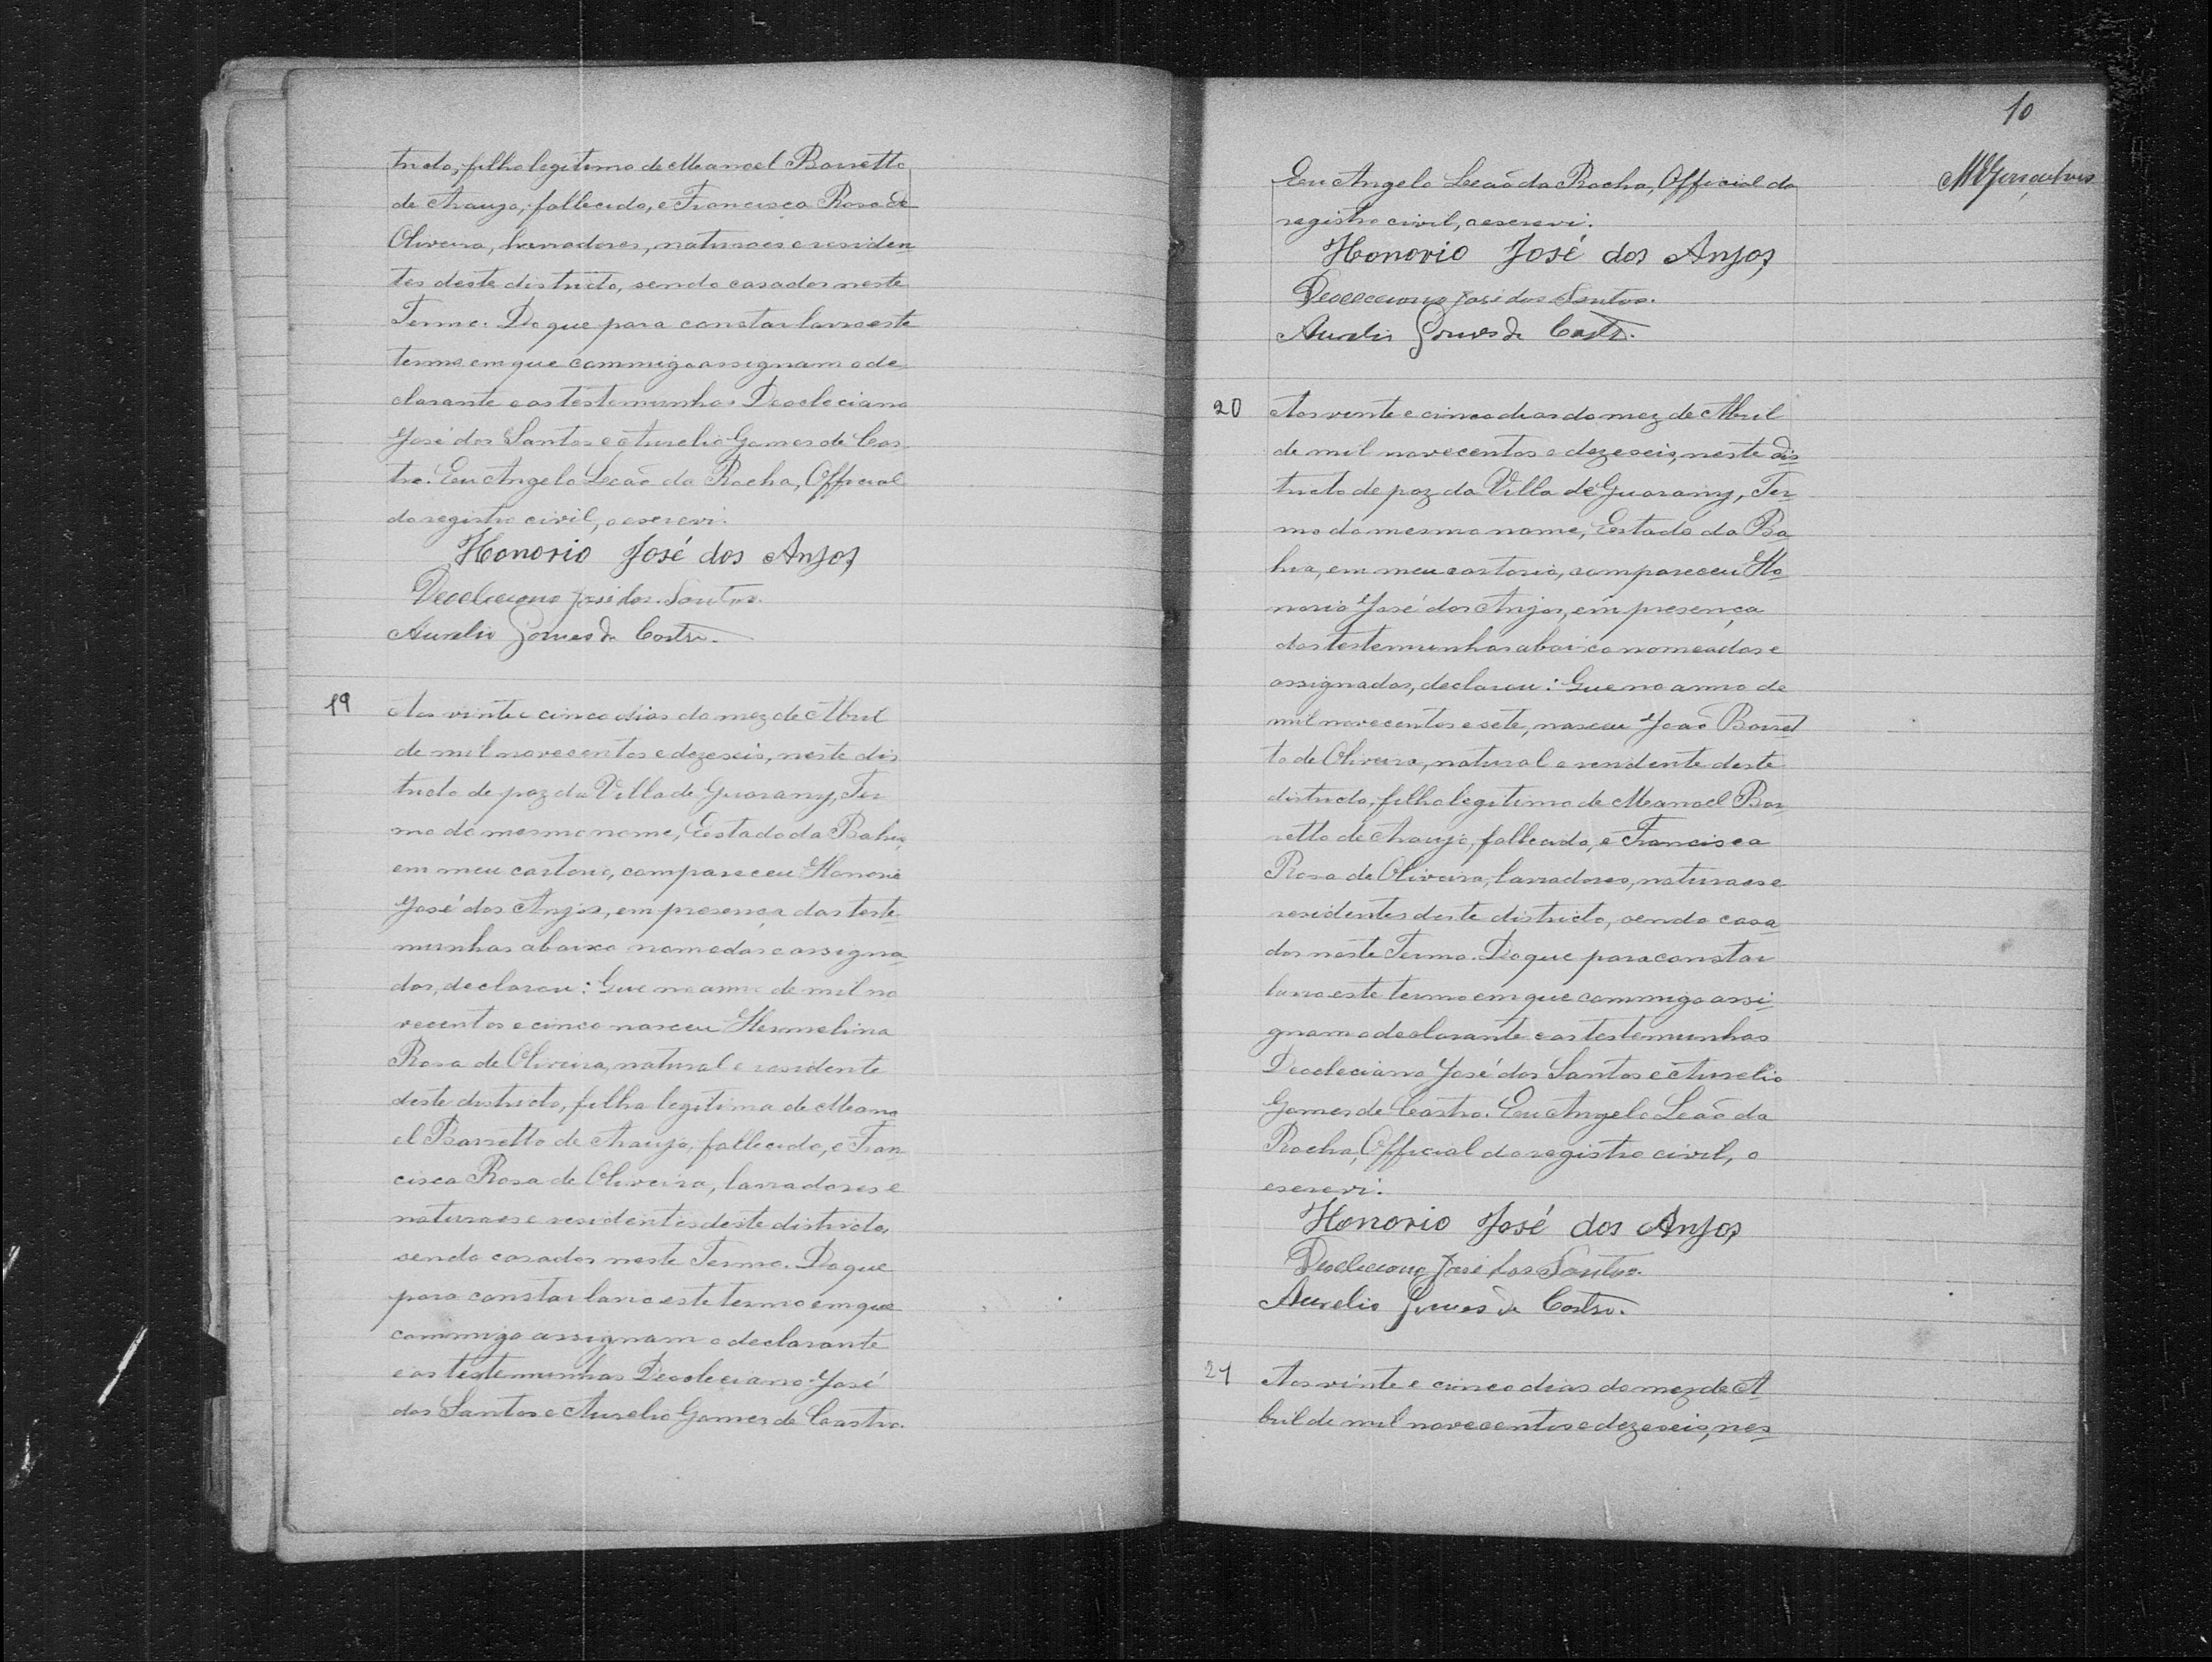 tricto, filho legitimo de Manoel Barretto
de Araujo, fallecido, e Francisca Rosa de
Oliveira, lavradores, naturaes e residen
tes deste districto, sendo casados neste
Termo. Do que para constar lavro este
termo em que commigo assignam o de
clarante e as testemunhas Deocleciano
José dos Santos e Aurelio Gomes de Cas
tro. Eu Angelo Leão da Rocha, Official
do registro civil, o escrevi.
Honorio José dos Anjos
Deocleciano José dos Santos.
Aurelio Gomes de Castro.
19 Aos vinte e cinco dias do mez de Abril
de mil novecentos e dezeseis, neste dis
tricto de paz da Villa de Guarany, Ter
mo do mesmo nome, Estado da Bahia,
em meu cartorio, compareceu Honorio
José dos Anjos, em presença das teste
munhas abaixo nomedas e assigna
das, declarou: Que no anno de mil no
vecentos e cinco nasceu Hermelina
Rosa de Oliveira, natural e residente
deste districto, filha legitima de Mano
el Barretto de Araujo, fallecido, e Fran
cisca Rosa de Oliveira, lavradores e
naturaes e residentes deste districto,
sendo casados neste Termo. Do que
para constar lavro este termo em que
commigo assignam o declarante
e as testemunhas Deocleciano José
dos Santos e Aurelio Gomes de Castro.
10
Eu Angelo Leão da Rocha, Official do
registro civil, o escrevi.
Honorio José dos Anjos
Deocleciano José dos Santos.
Aurelio Gomes de Castro.
20 Aos vinte e cinco dias do mez de Abril
de mil novecentos e dezeseis, neste dis
tricto de paz da Villa de Guarany, Ter
mo do mesmo nome, Estado da Ba
hia, em meu cartorio, compareceu Ho
norio José dos Anjos, em presença
das testemunhas abaixo nomeadas e
assignadas, declarou: Que no anno de
mil novecentos e sete, nasceu João Barret
to de Oliveira, natural e residente deste
districto, filho legitimo de Manoel Bar
retto de Araujo, fallecido, e Francisca
Rosa de Oliveira, lavradores, naturaes e
residentes deste districto, sendo casa
dos neste Termo. Do que para constar
lavro este termo em que commigo assi
gnam o declarante e as testemunhas
Deocleciano José dos Santos e Aurelio
Gomes de Castro. Eu Angelo Leão da
Rocha, Official do registro civil, o
escrevi.
Honorio José dos Anjos
Deocleciano José dos Santos.
Aurelio Gomes de Castro.
21 Aos vinte e cinco dias do mez de A
bril de mil novecentos e dezeseis, nes